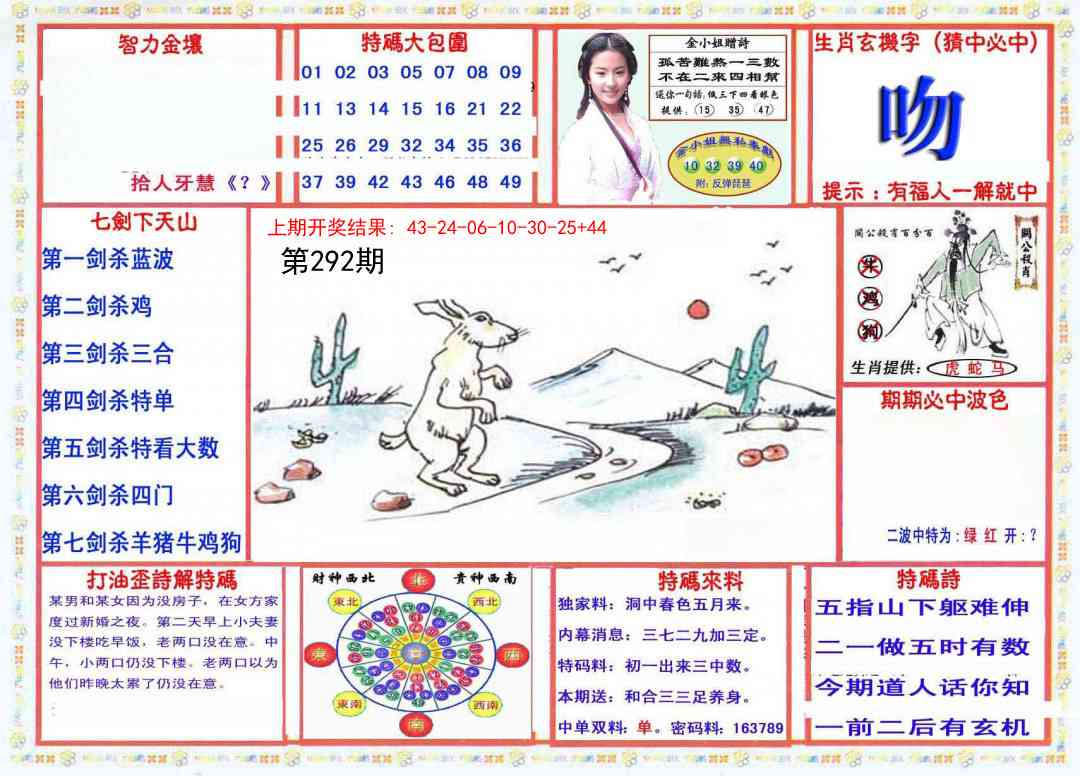 智力金壤
拾人牙慧《？》
特碼大包圍
01 02 03 05 07 08 09
11 13 14 15 16 21 22
25 26 29 32 34 35 36
37 39 42 43 46 48 49
金小姐贈詩
孤苦難熬一三數
不在二來四相幫
送你一句話,低三下四看眼色
提供:(15) 35) (47)
金小姐無私奉獻
10 32 39 40
附:反弹琵琶
生肖玄機字（猜中必中）
吻
提示：有福人一解就中
七劍下天山
第一剑杀蓝波
第二剑杀鸡
第三剑杀三合
第四剑杀特单
第五剑杀特看大数
第六剑杀四门
第七剑杀羊猪牛鸡狗
上期开奖结果: 43-24-06-10-30-25+44
第292期
關公殺肖百分百
關公殺肖
牛
鸡
狗
生肖提供:虎 蛇 马
期期必中波色
二波中特为:绿 红 开:？
打油歪詩解特碼
某男和某女因为没房子，在女方家
度过新婚之夜。第二天早上小夫妻
没下楼吃早饭，老两口没在意。中
午，小两口仍没下楼。老两口以为
他们昨晚太累了仍没在意。
財神西北
貴神西南
北
東北
西北
東
西
東南
西南
南
特碼來料
独家料：洞中春色五月来。
内幕消息：三七二九加三定。
特码料：初一出来三中数。
本期送：和合三三足养身。
中单双料:单。密码料:163789
特碼詩
五指山下躯难伸
二一做五时有数
今期道人话你知
一前二后有玄机